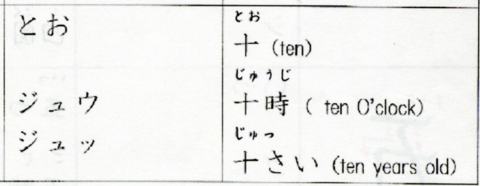 とお
とお
十 (ten)
じゅうじ
ジュウ
十時 ( ten O'clock)
じゅっ
ジュッ
十さい (ten years old)